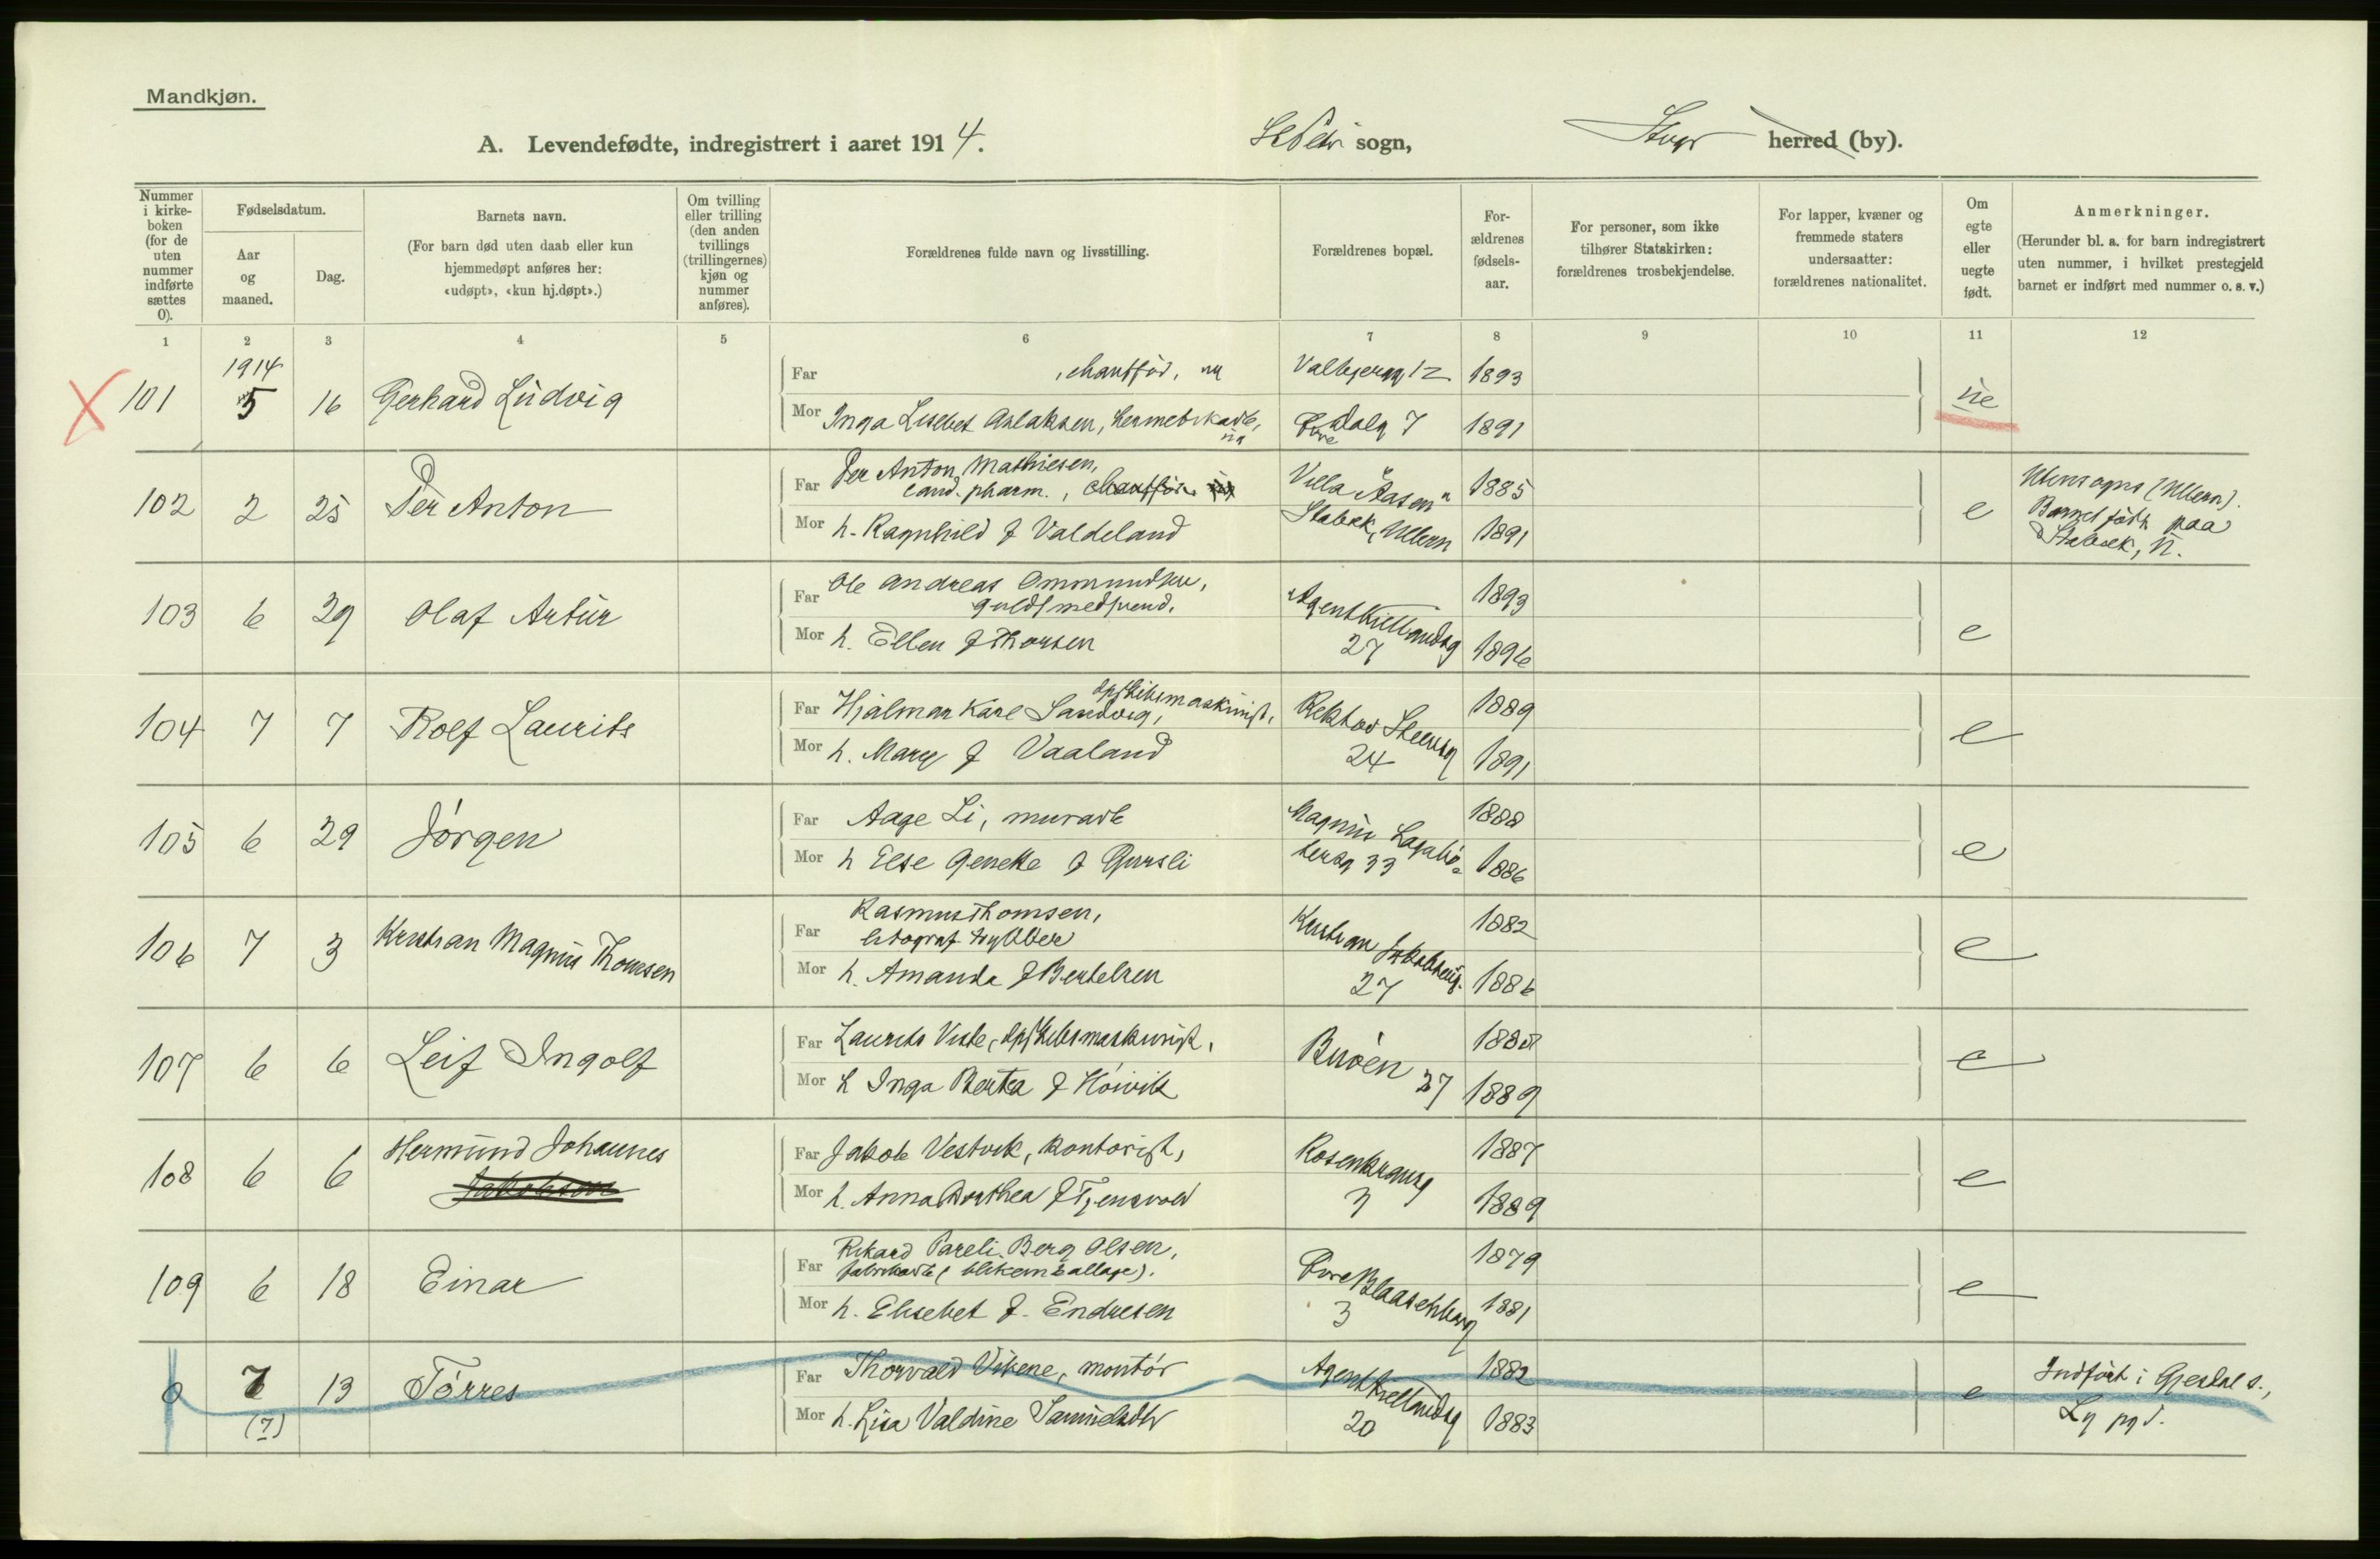 Mandkjøn.
A. Levendefødte, indregistrert i aaret 1914.
St Petri sogn,
Stvgr herred (by).
Nummer i kirkeboken (for de uten nummer indførte sættes 0).
Fødselsdatum.
Aar og maaned.
Dag.
Barnets navn.
(For barn død uten daab eller kun hjemmedøpt anføres her: «udøpt», «kun hj.døpt».)
Om tvilling eller trilling (den anden tvillings (trillingernes) kjøn og nummer anføres).
Forældrenes fulde navn og livsstilling.
Forældrenes bopæl.
For-ældrenes fødsels-aar.
For personer, som ikke tilhører Statskirken: forældrenes trosbekjendelse.
For lapper, kvæner og fremmede staters undersaatter: forældrenes nationalitet.
Om egte eller uegte født.
Anmerkninger.
(Herunder bl. a. for barn indregistrert uten nummer, i hvilket prestegjeld barnet er indført med nummer o. s. v.)
1 2 3 4 5 6 7 8 9 10 11 12
1914
101 5 16 Gerhard Ludvig
Far , chauffør, ug Valbjerg 12 1893
Mor Inga Lisebet Aslaksen, hermetikarb., ug Øvre Dalg 7 1891
ue
102 2 25 Per Anton
Far Per Anton Mathiesen, cand. pharm., chauffør Villa "Aasen" 1885
Mor h. Ragnhild f Valdeland Stabæk, Ullern 1891
e
(Ullern). Barnet født paa Stabæk, U.
103 6 29 Olaf Artur
Far Ole Andreas Ommundsen, guldsmedsvend. 1893
Mor h. Ellen f Thorsen Agent Kiellandsg 27 1896
e
104 7 7 Rolf Laurits
Far Hjalmar Karl Sandvig, dpskibsmaskinist, Rektor Steensg 24 1889
Mor h. Mary f Vaaland 1891
e
105 6 29 Jørgen
Far Aage Li, murarb Magnus Lagabø- 1888
Mor h Else Genette f Gursli tersg 33 1886
e
106 7 3 Kristian Magnus Thomsen
Far Rasmus Thomsen, litograf trykker 1882
Mor h. Amanda f Bertelsen 27 1886
e
107 6 6 Leif Ingolf
Far Laurits Viste, dpskibsmaskinist, Buøen 37 1888
Mor h Inga Berta f Høivik 1889
e
108 6 6 Hermund Johannes
Jakobsen
Far Jakob Vestvik, kontorist, Rosenkransg 3 1887
Mor h. Anna Dorthea f Tjensvold 1889
e
109 6 18 Einar
Far Rikard Pareli Berg Olsen, fabrikarb (blikemballage). 1879
Mor h. Elisebet f. Endresen Øvre Blaasenborg 3 1881
e
0 7 13 Tørres
(7)
Far Thorvald Vikene, montør Agent Kiellandsg 20 1882
Mor h. Lisa Valdine Samuelsdtr 1883
e
Indført i Gjesdal s., Ly pgd.